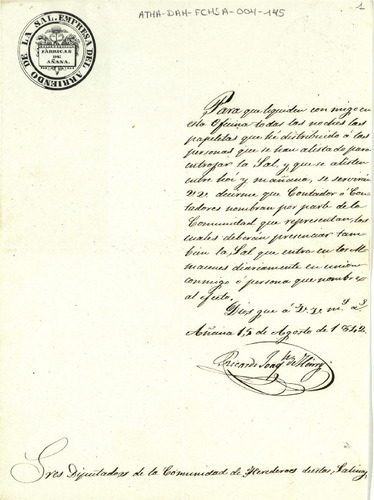 ATHA-DAH-FCHSA-004-145
1
EMPRESA DEL ARRIENDO DE LA SAL.
FÁBRICAS
DE
AÑANA.
Para que liquiden conmigo en
esta Oficina todas las noches las
papeletas que hé distribuido á las
personas que se han alistado para
entrojar la Sal, y que se alisten
entre hoi y mañana, se serviran
V.V. decirme que Contador ó Con-
tadores nombran por parte de la
Comunidad que representan, los
cuales deberán presenciar tam-
bien la Sal que entra en los Al-
macenes diariamente en union
conmigo ó persona que nombre
al efecto.
Dios gue á V.V. ms as
Añana 15 de Agosto de 1842.
Ricardo
Sres Diputados de la Comunidad de Herederos de estas Salinas